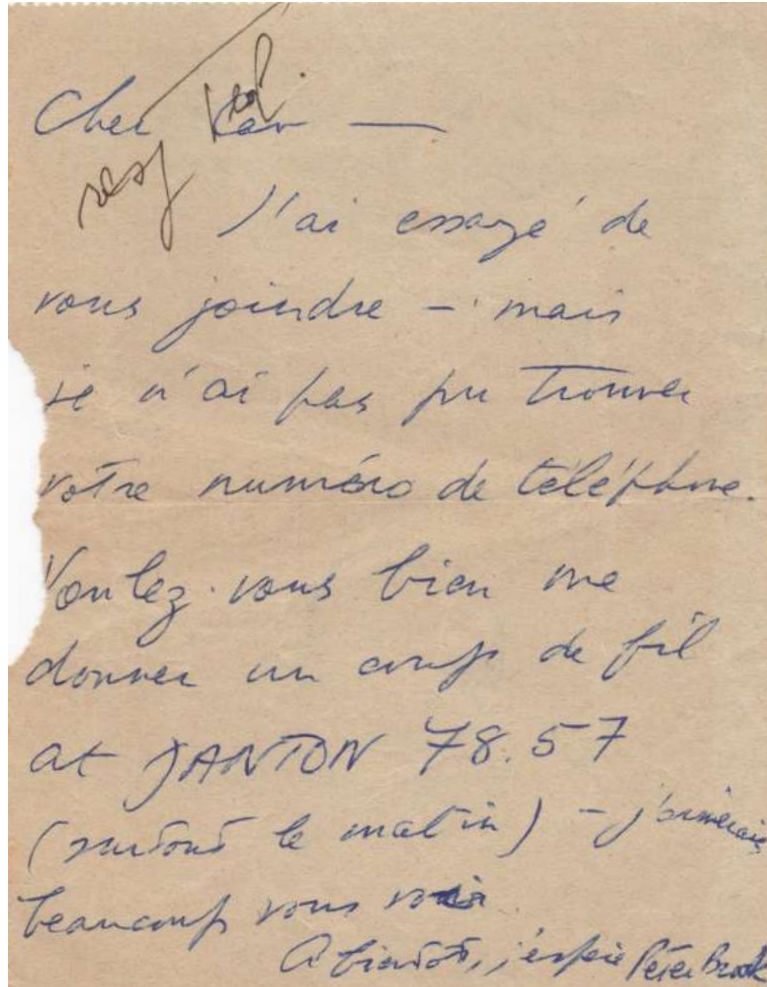 Cher
J'ai essayé de
vous joindre – mais
je n'ai pas pu trouver
votre numéro de téléphone.
Voulez-vous bien me
donner un coup de fil
at DANTON 78.57
(surtout le matin) – j'aimerais
beaucoup vous voir
A bientôt, j'espère Peter Brook